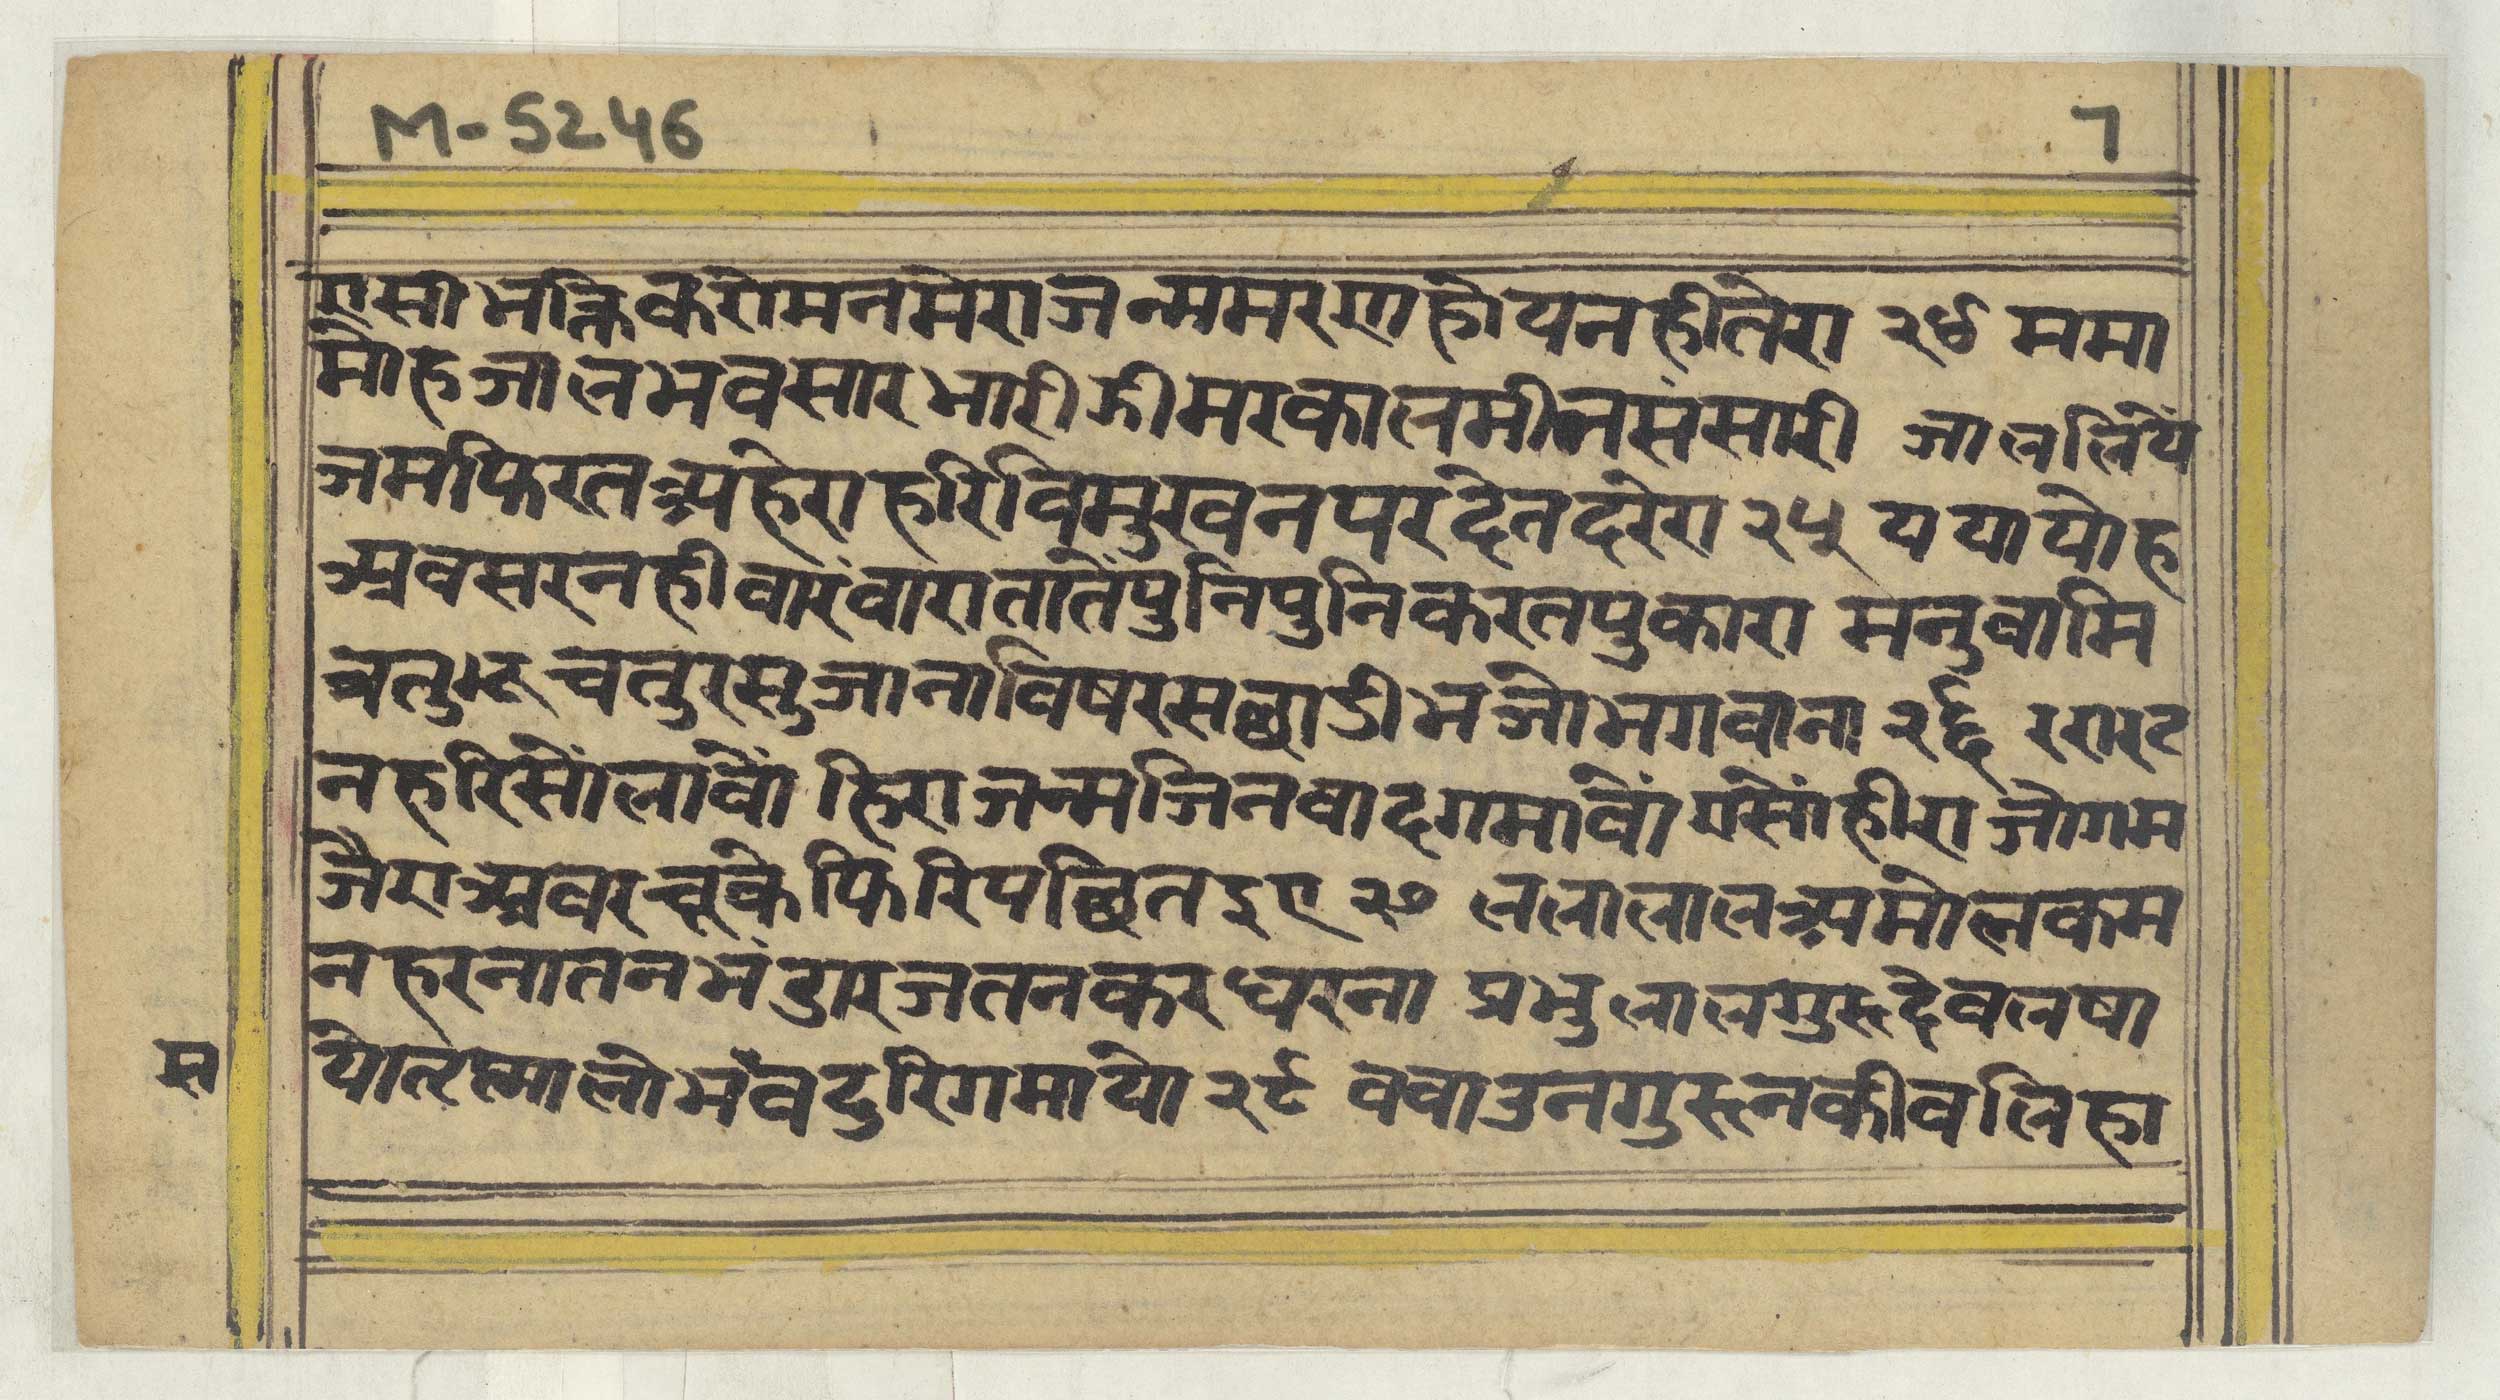 M-5246
7
एसी भक्ति करो मन मेरा जन्म मरण होय नही तेरा २४ ममा
मोह जाल भव सार भारी झीमर काल मीन संसारी जाल लियें
जम फिरत अहेरा हरि विमुखन पर देत दरेरा २५ यया योह
अवसर नही वारंवारा तातें पुनि पुनि करत पुकारा मनुवा मि
चतुर सुजाना विषरस छाडी भजो भगवाना २६ ररा रट
न हरि सों लावों हिरा जन्म जिन बाद गमावों एसों हीरा जो गम
जैरा अवर चूके फिरि पछितइए २७ लला लाल अमोलक म
न हरना तन भंडार जतन कर धरना प्रभु लाल गुरुदेव लषा
यो भंव दुरि गमायो २८ ववा उन गुरुन की वलिहा